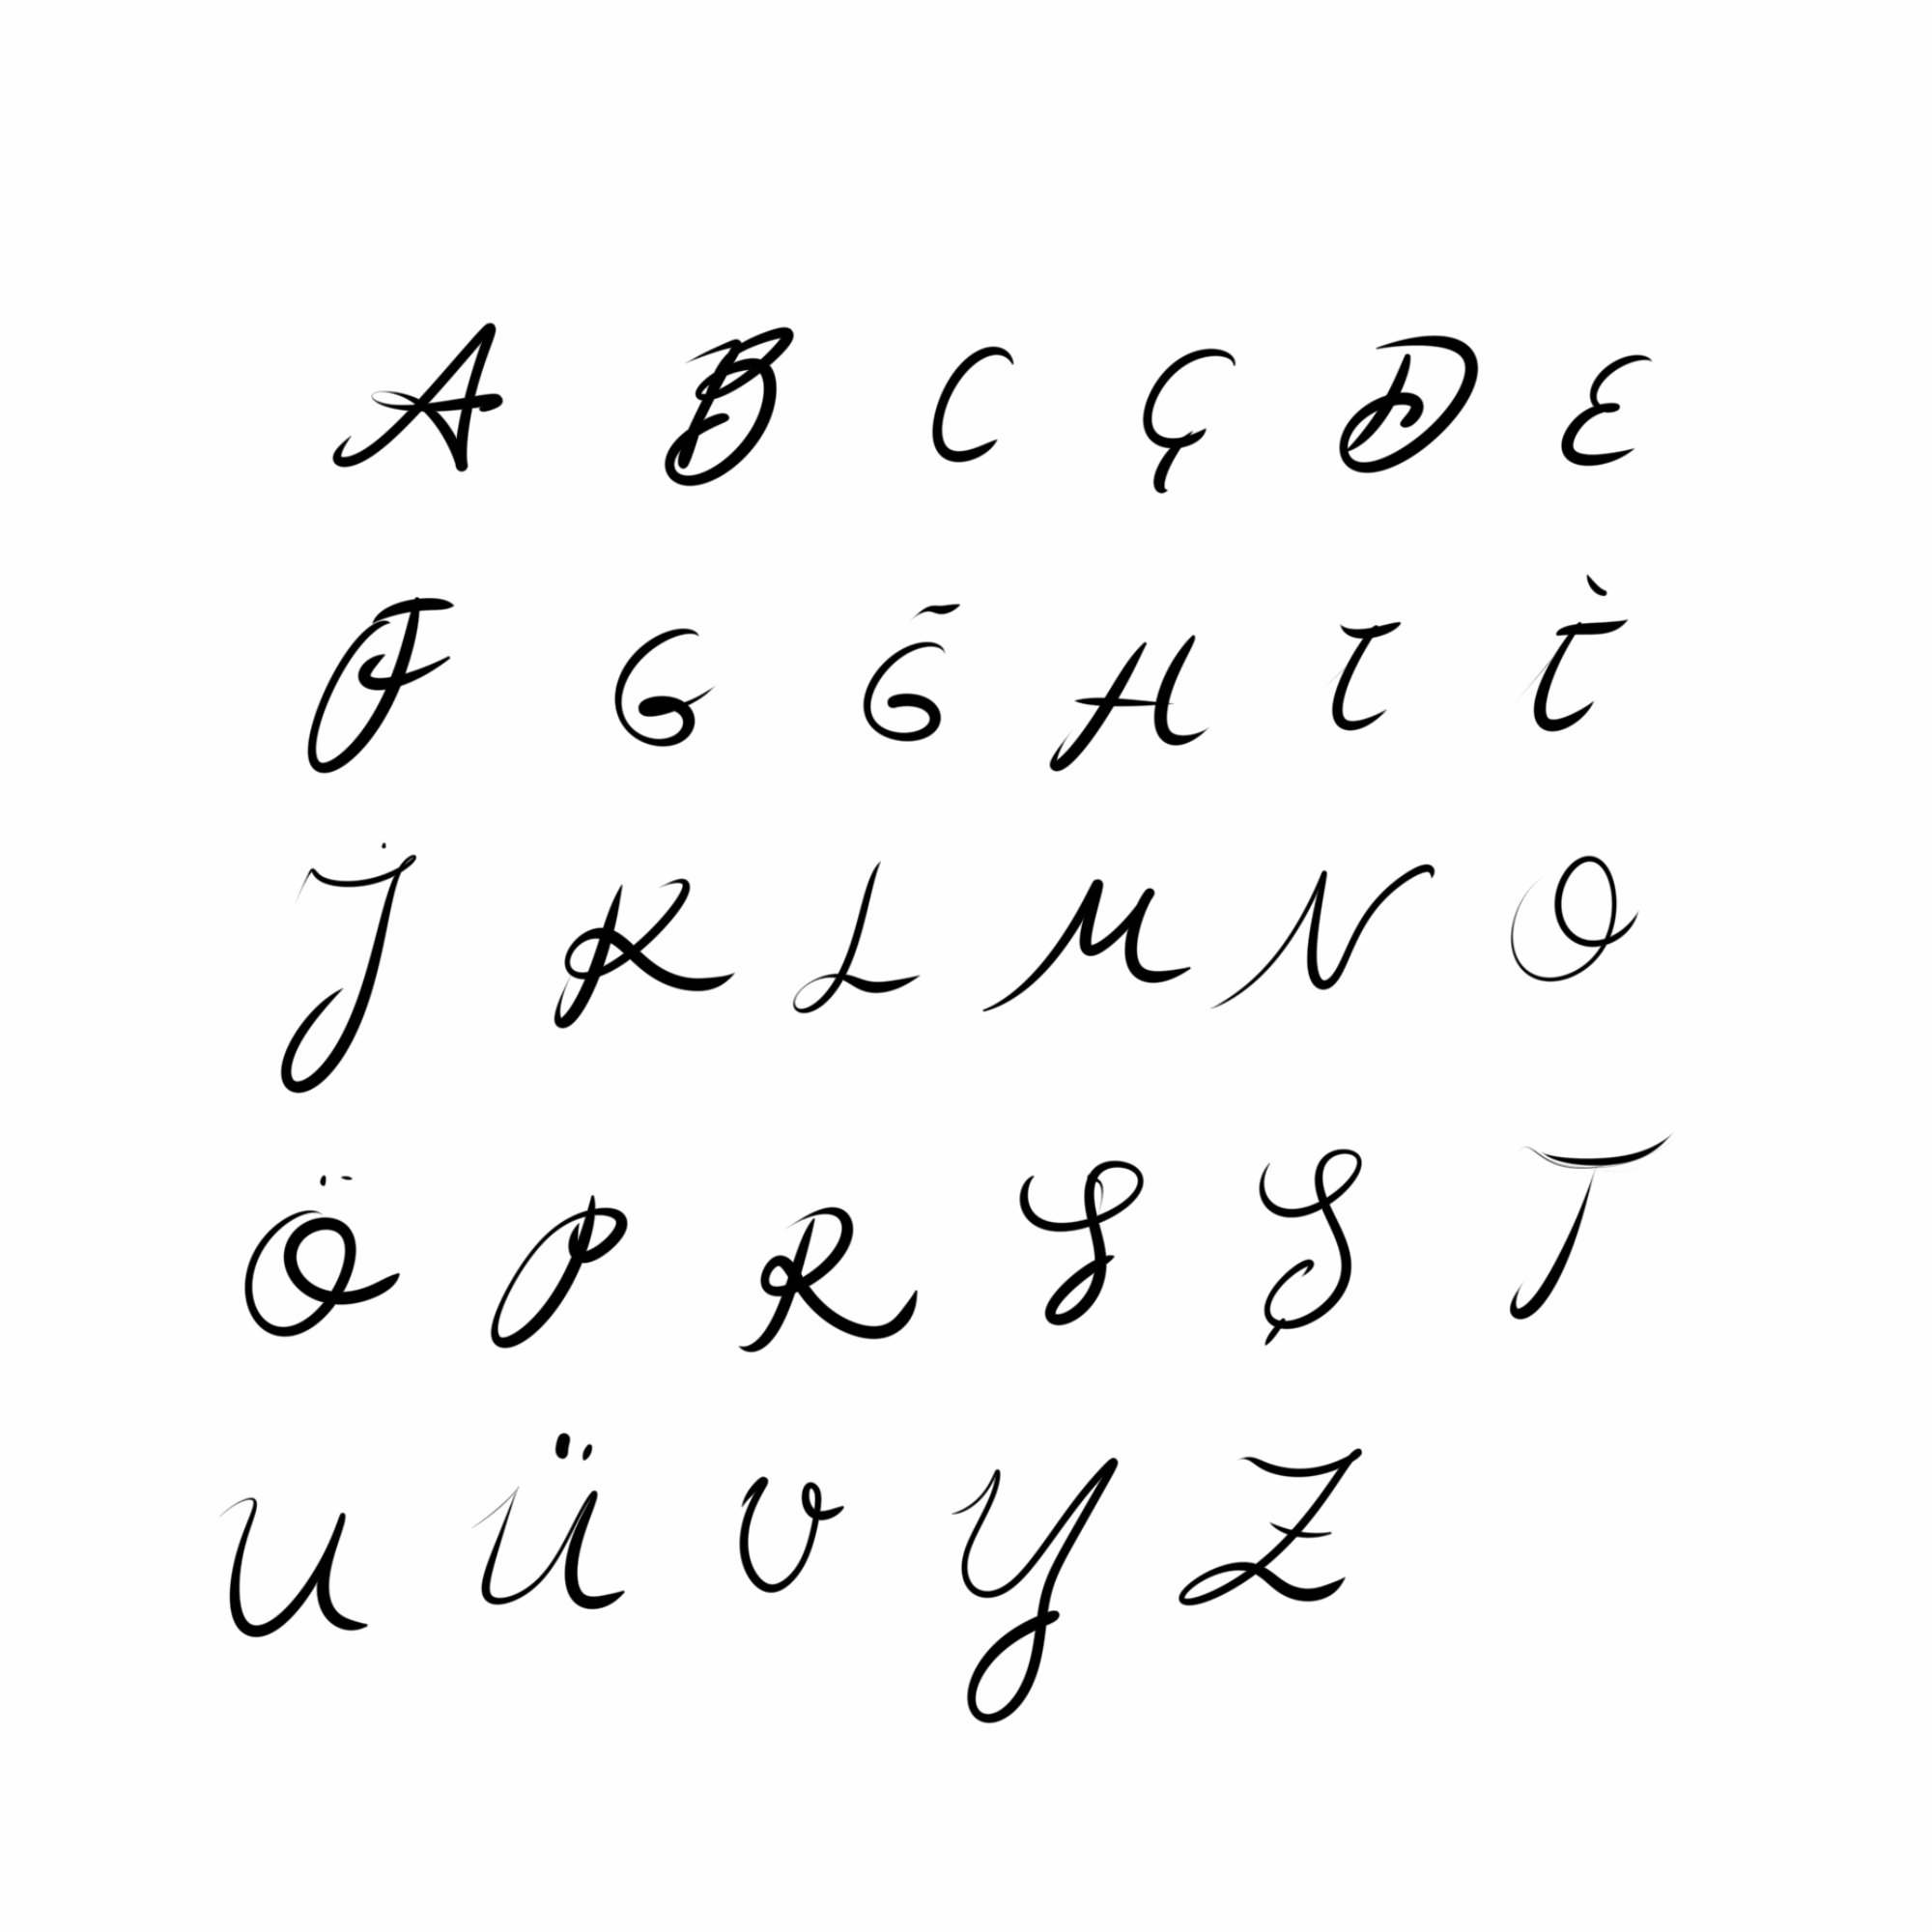 A B C Ç D E
F G Ğ H I İ
J K L M N O
Ö P R S Ş T
U Ü V Y Z